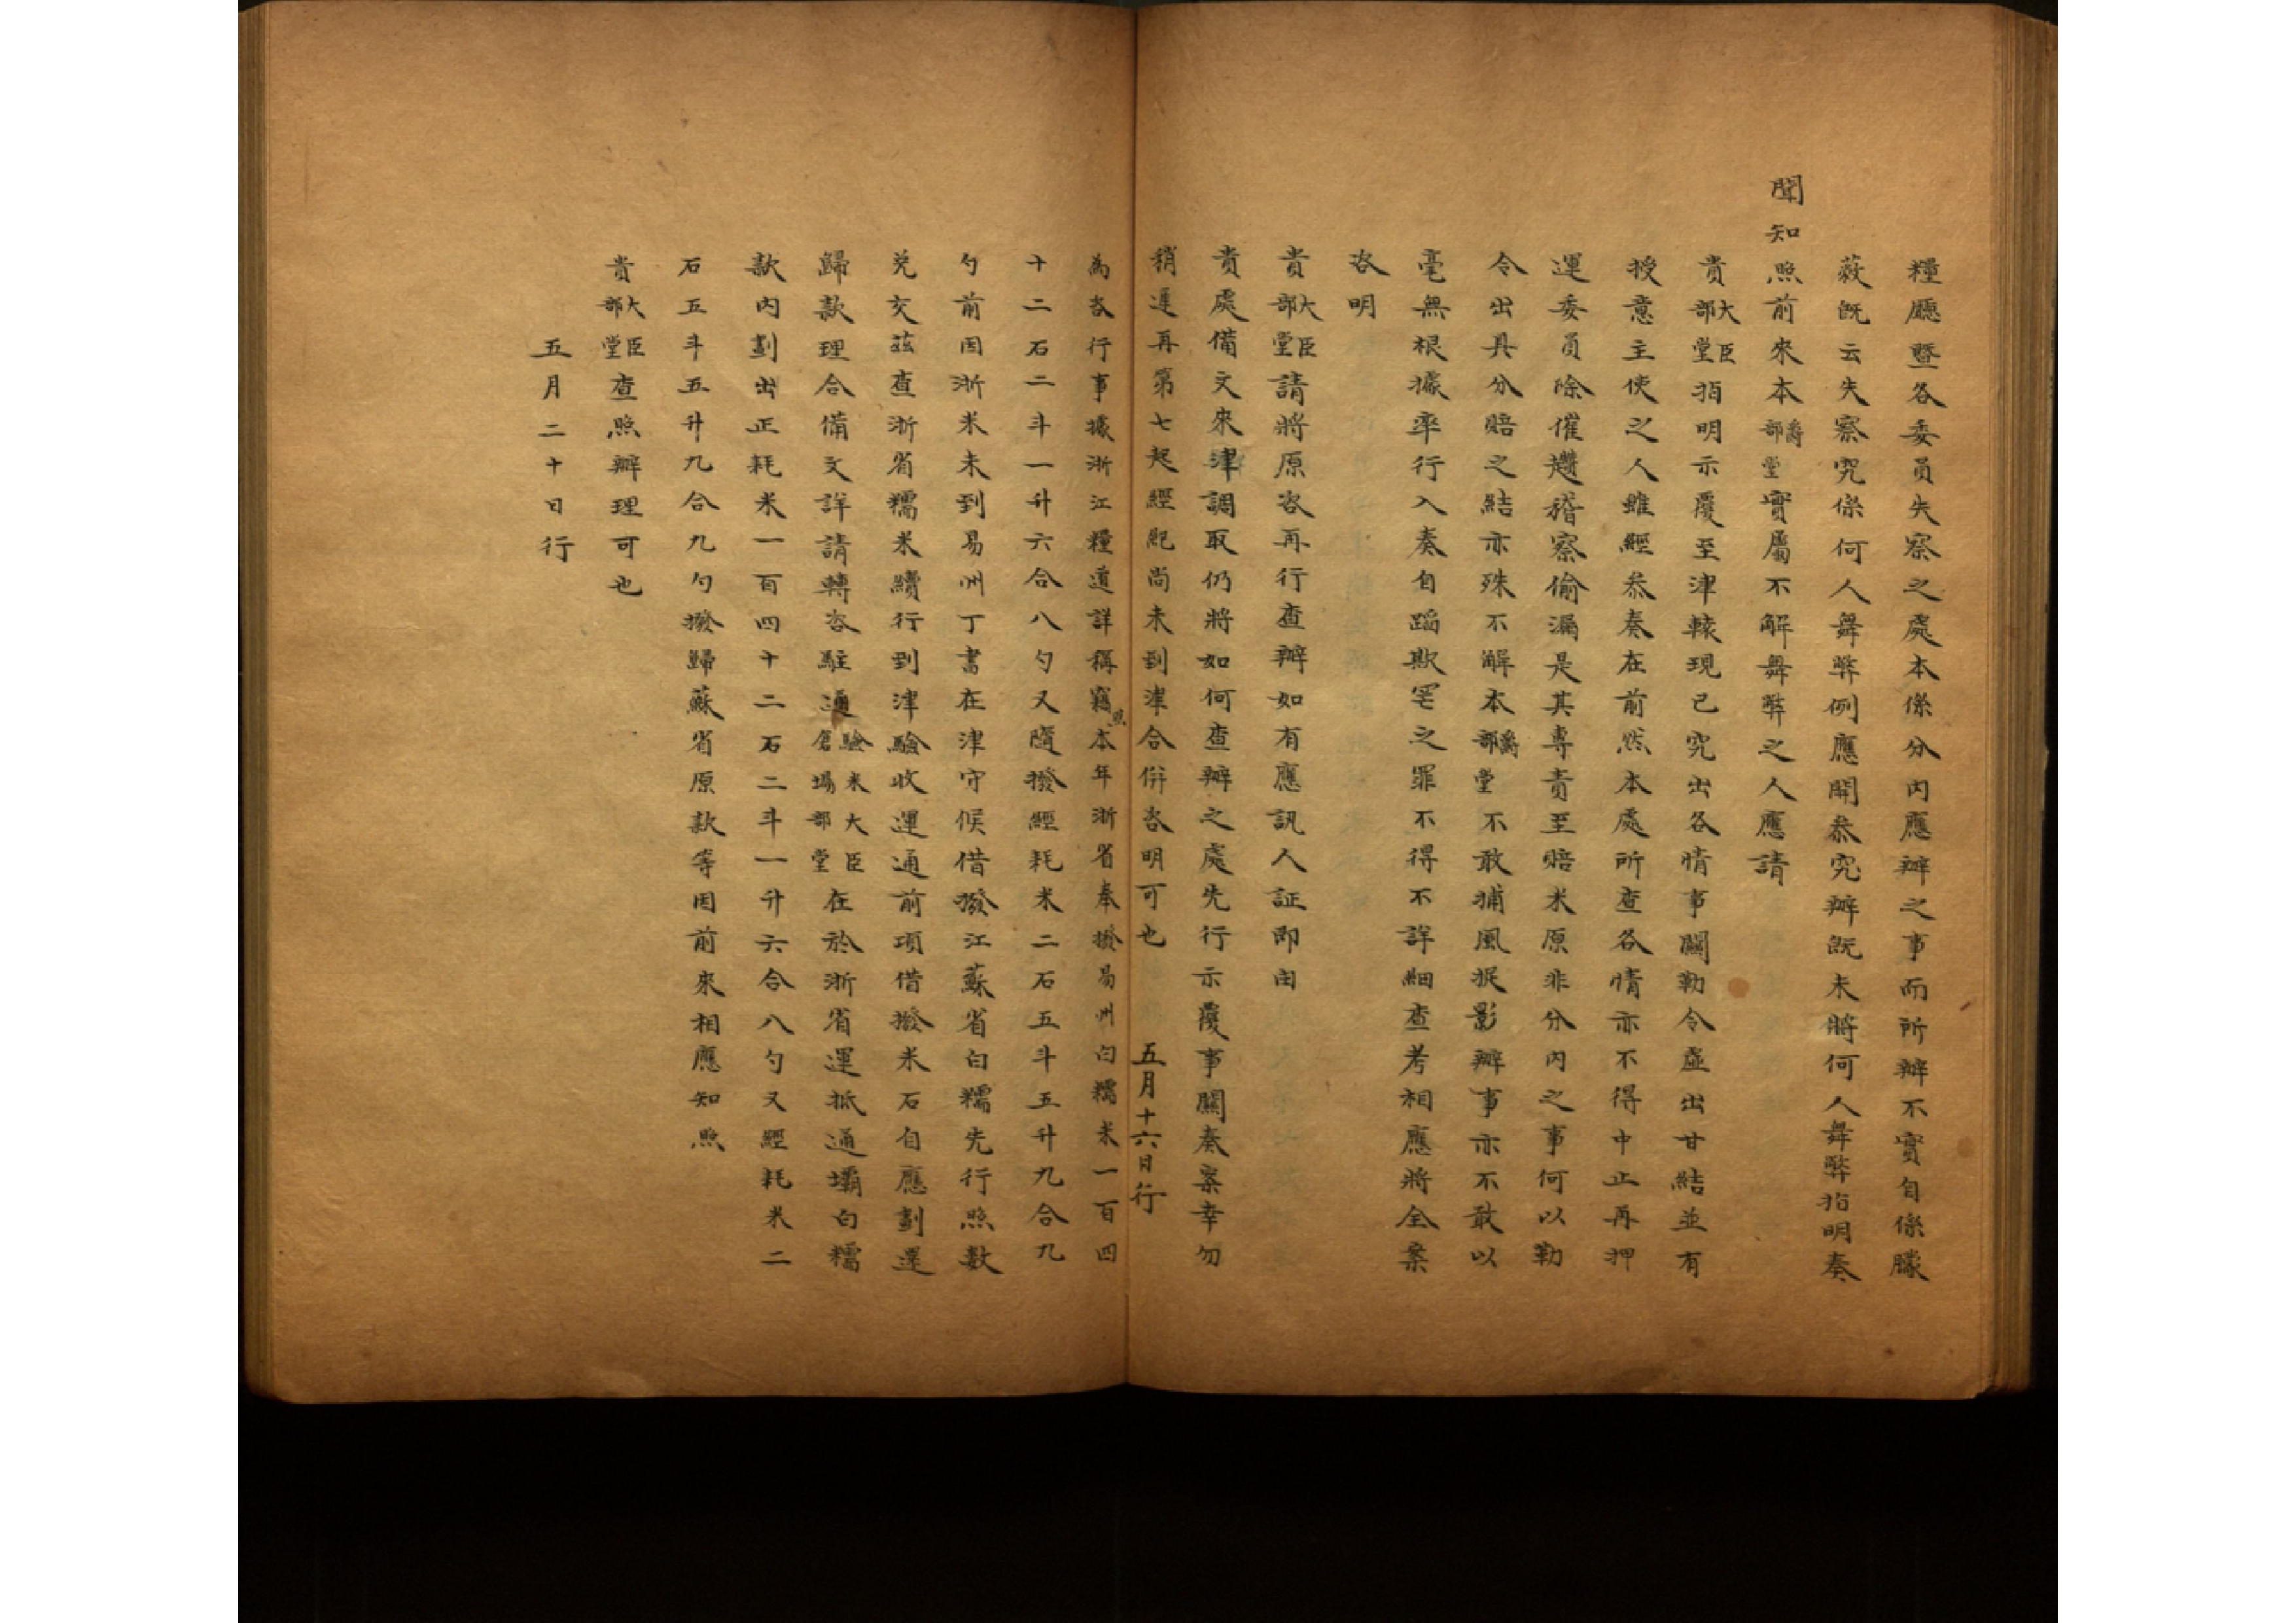 糧廳暨各委員失察之處本係分內應辦之事而所辦不實自係朦
蔽既云失察究係何人舞弊例應開叅究辦既未將何人舞弊指明奏
聞知照前來本爵部堂實屬不解舞弊之人應請
貴大臣部堂指明示覆至津轅現已究出各情事關勒令虛出甘結並有
授意主使之人雖經叅奏在前然本處所查各情亦不得中止再押
運委員除催趲稽察偷漏是其專責至賠米原非分內之事何以勒
令出具分賠之結亦殊不解本爵部堂不敢捕風捉影辦事亦不敢以
毫無根據率行入奏自蹈欺罔之罪不得不詳細查考相應將全案
咨明
貴大臣部堂請將原咨再行查辦如有應訊人証即由
貴處備文來津調取仍將如何查辦之處先行示覆事關奏案幸勿
稍遲再第七起經紀尚未到津合併咨明可也 五月十六日行
為咨行事據浙江糧道詳稱竊照本年浙省奉撥易州白糯米一百四
十二石二斗一升六合八勺又隨撥經耗米二石五斗五升九合九
勺前因浙米未到易州丁書在津守候借撥江蘇省白糯先行照數
兌交茲查浙省糯米續行到津驗收運通前項借撥米石自應劃還
歸款理合備文詳請轉咨駐通驗米大臣倉場部堂在於浙省運抵通壩白糯
款內劃出正耗米一百四十二石二斗一升六合八勺又經耗米二
石五斗五升九合九勺撥歸蘇省原款等因前來相應知照
貴大臣部堂查照辦理可也
五月二十日行